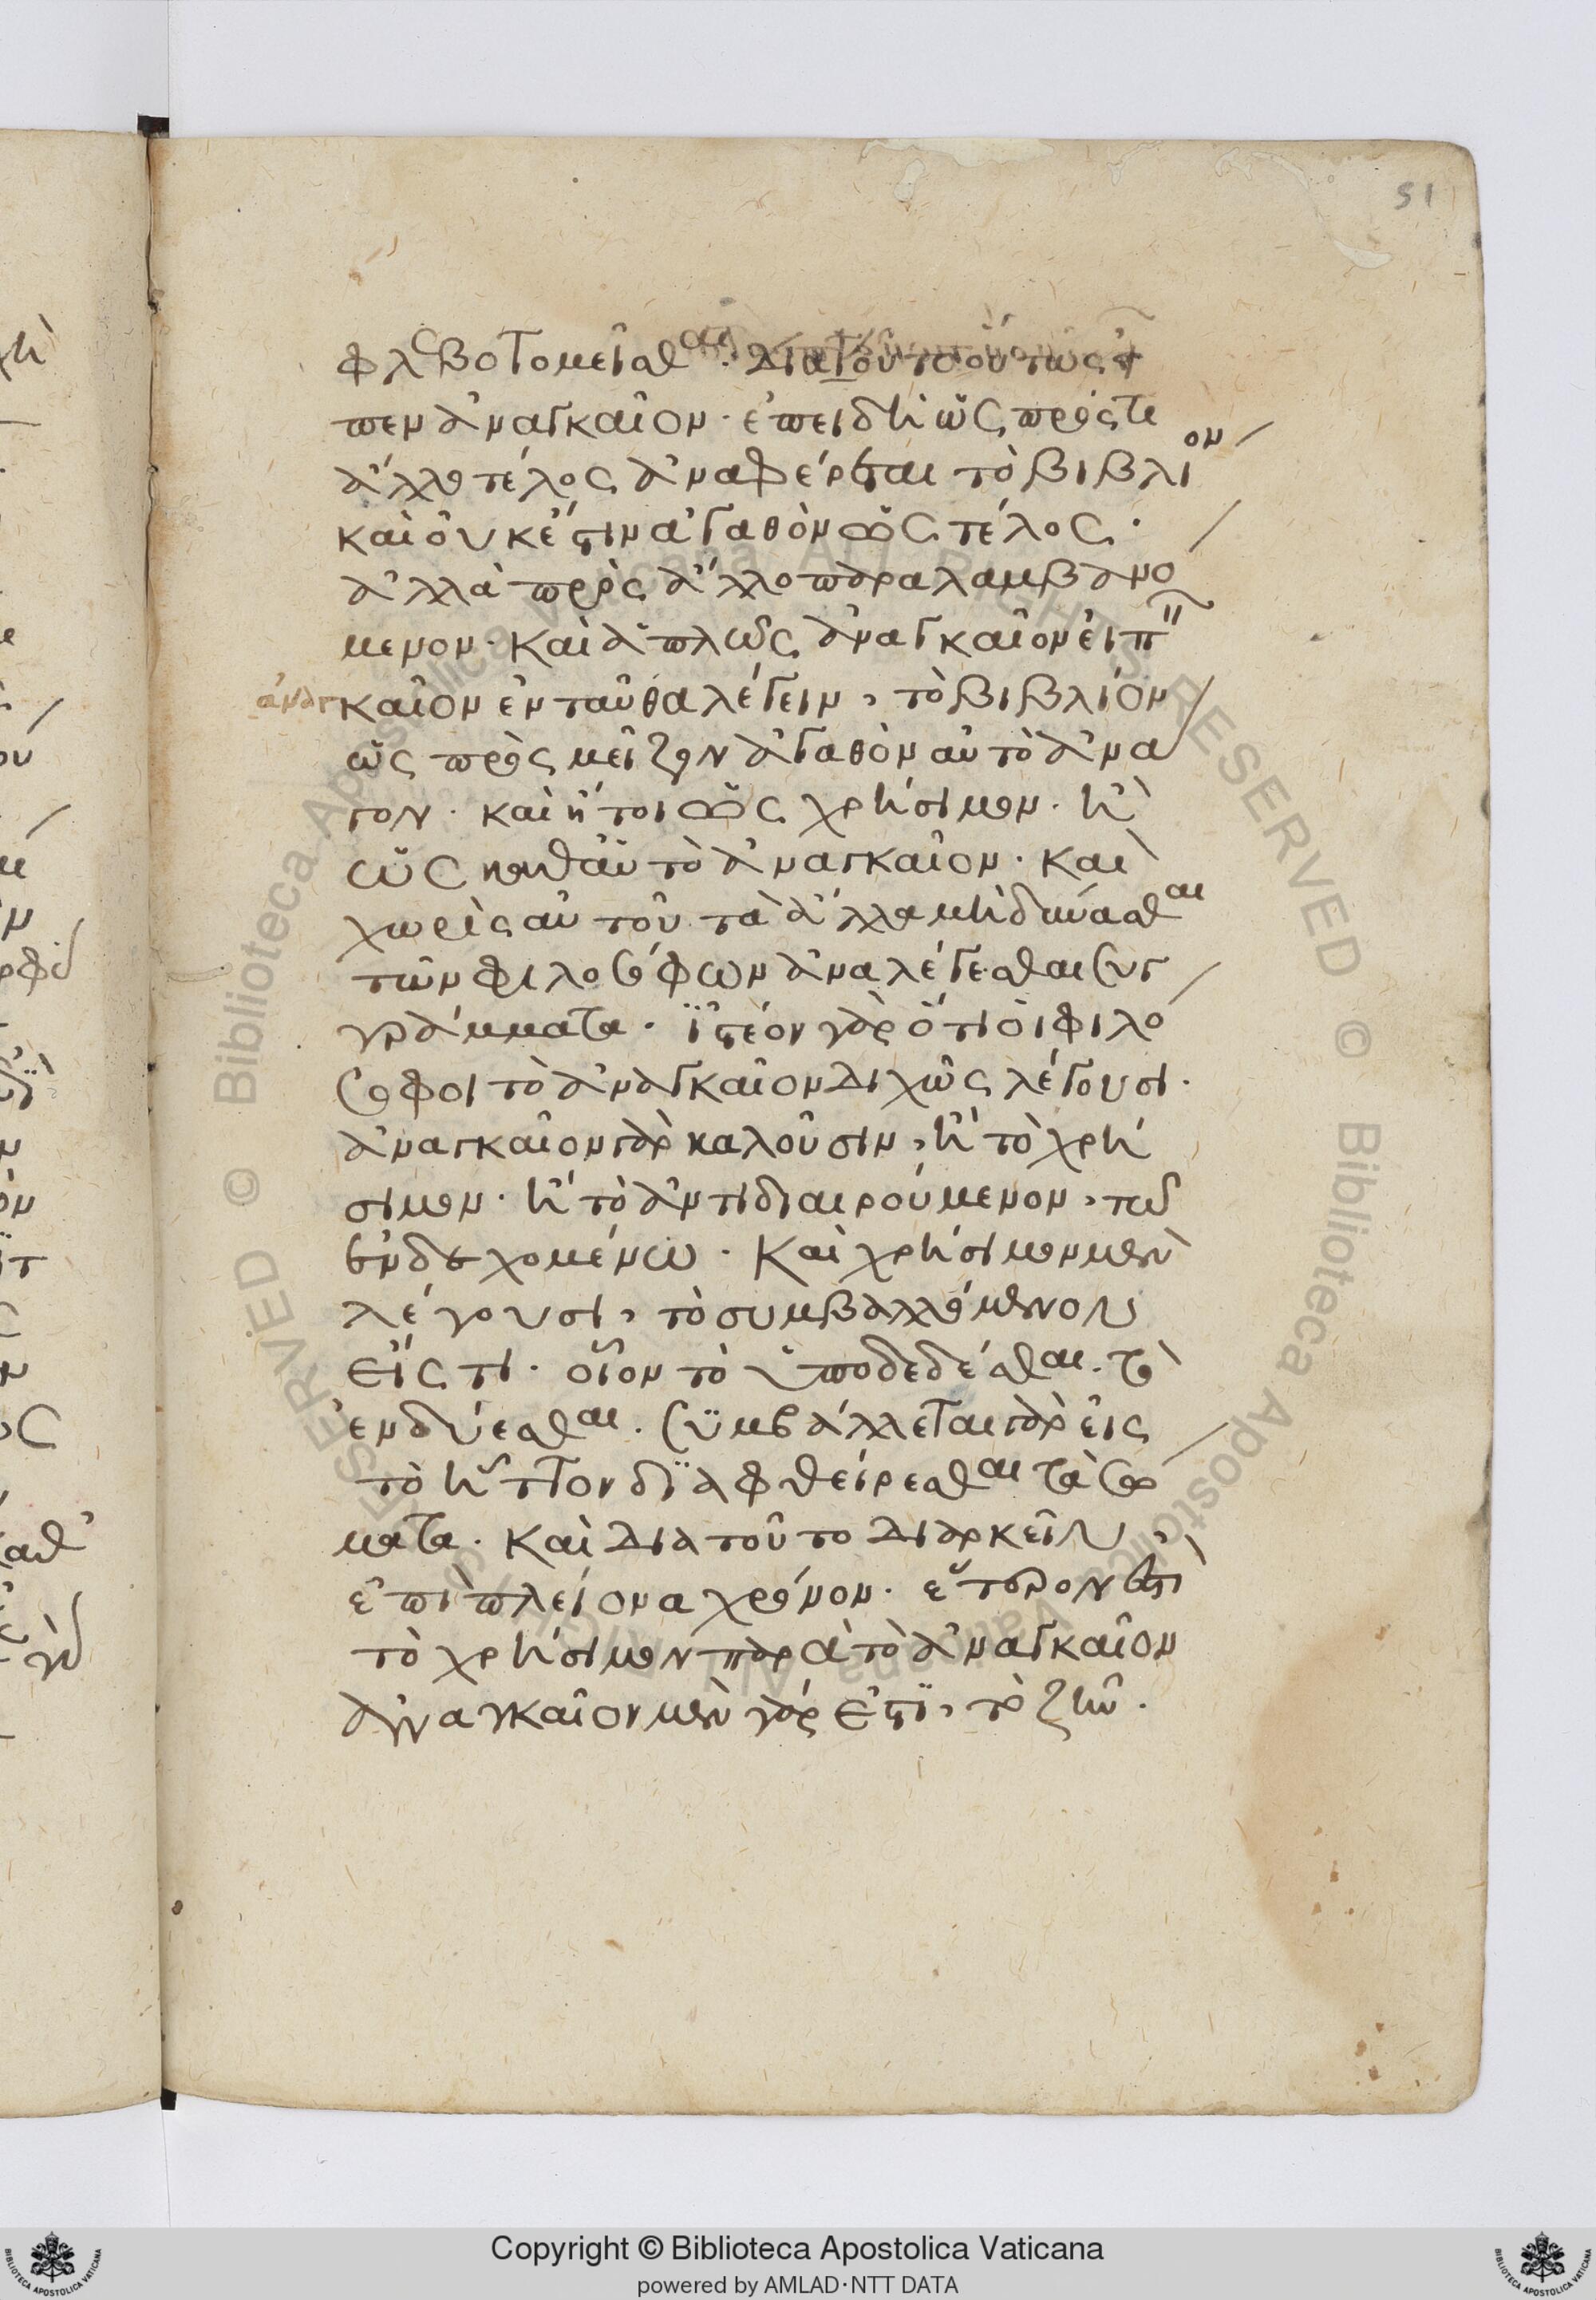 51
φλεβοτομεῖσθαι. διατοῦτο οὕτως εἶ
πεν ἀναγκαῖον· ἐπειδὴ ὡς πρός τι
ἄλλο τέλος ἀναφέρεται τὸ βιβλίον
καὶ οὐκ ἔστιν ἀγαθὸν ὡς τέλος·
ἀλλὰ πρὸς ἄλλο παραλαμβανό
μενον· καὶ ἁπλῶς ἀναγκαῖον εἰπ
καῖον ἐνταῦθα λέγειν, τὸ βιβλίον
ὡς πρὸς μεῖζον ἀγαθὸν αὐτὸ ἀνα
γον· καὶ ἤτοι ὡς χρήσιμον· ἢ
ὡς αὐτὸ ἀναγκαῖον· καὶ
χωρὶς αὐτοῦ τὰ ἄλλα μὴ δύνασθαι
τῶν φιλοσόφων ἀναλέγεσθαι συγ
γράμματα· ἰστέον γὰρ ὅτι οἱ φιλό
σοφοι τὸ ἀναγκαῖον διχῶς λέγουσι·
ἀναγκαῖον γὰρ καλοῦσιν, ἢ τὸ χρή
σιμον· ἢ τὸ ἀντιδιαιρούμενον, τῶ
ἐνδεχομένω· καὶ χρήσιμον μὲν
λέγουσι, τὸ συμβαλλόμενον
εἴς τι· οἷον τὸ ὑποδεδέσθαι· τὸ
ἐνδύεσθαι· συμβάλλεται γὰρ εἰς
τὸ ἧττον διαφθείρεσθαι τὰ σώ
ματα· καὶ διατοῦτο διαρκεῖν,
ἐπὶ πλείονα χρόνον· ἕτερον ἐστὶ
τὸ χρήσιμον παρὰ τὸ ἀναγκαῖον
ἀναγκαῖον μὲν γάρ ἐστι, τὸ ζῆν·
Copyright © Biblioteca Apostolica Vaticana
powered by AMLAD·NTT DATA